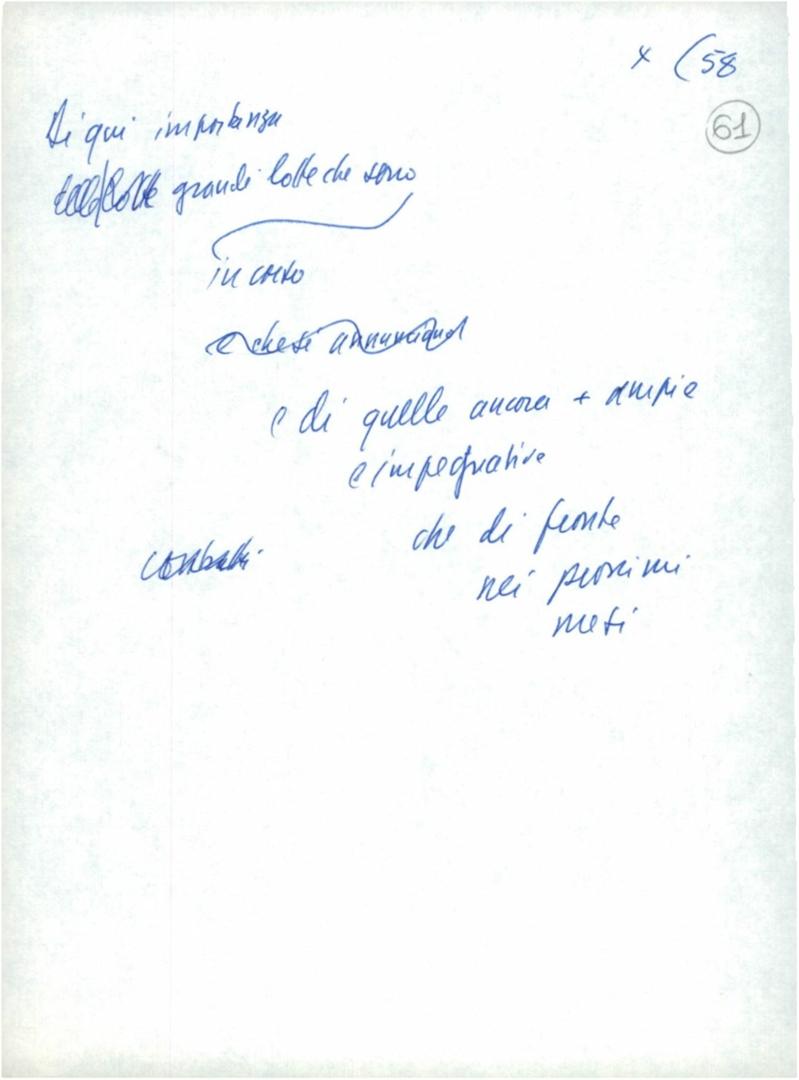 x (58
61
Di qui importanza
grandi lotte che sono
in corso
e che si annunciano
e di quelle ancora + ampie
e impegnative
che di fronte
nei prossimi
mesi